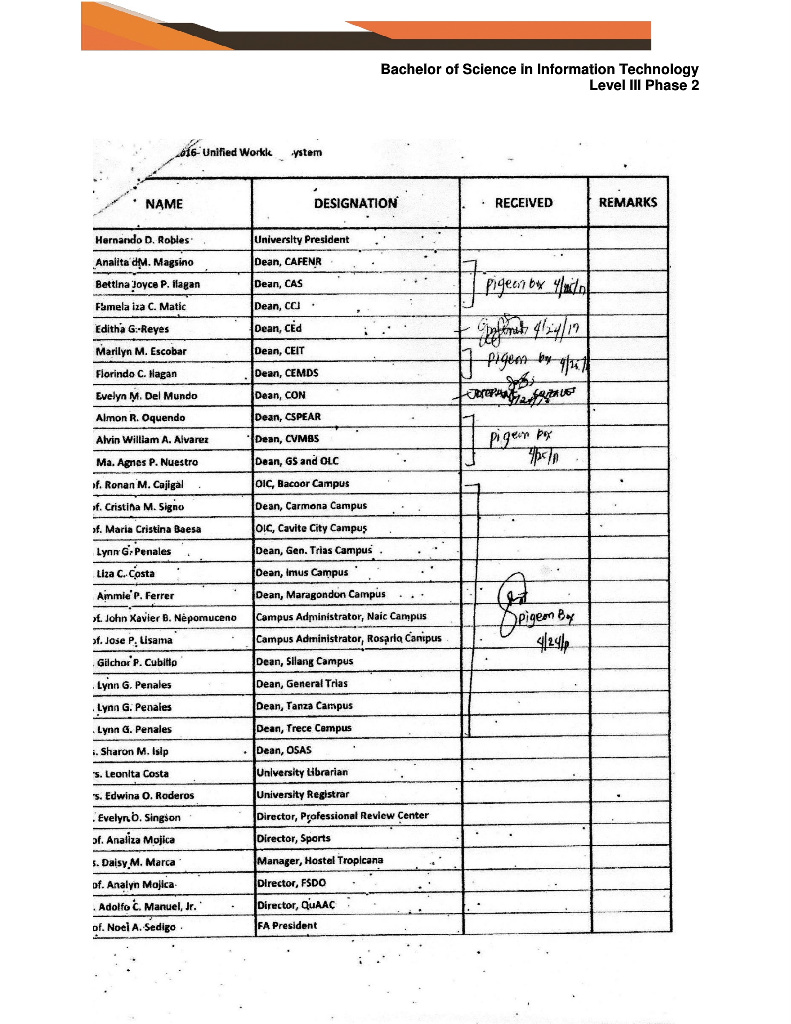 Bachelor of Science in Information Technology
Level III Phase 2
016- Unified Workl ystem
NAME DESIGNATION RECEIVED REMARKS
Hernando D. Robles University President
Analita dM. Magsino Dean, CAFENR
Bettina Joyce P. Ilagan Dean, CAS pigeon box
Famela iza C. Matic Dean, CCJ
Editha G. Reyes Dean, CEd 4/24/17
Marilyn M. Escobar Dean, CEIT pigeon box
Florindo C. Ilagan Dean, CEMDS
Evelyn M. Del Mundo Dean, CON
Almon R. Oquendo Dean, CSPEAR
Alvin William A. Alvarez Dean, CVMBS pigeon box
Ma. Agnes P. Nuestro Dean, GS and OLC
of. Ronan M. Cajigal OIC, Bacoor Campus
of. Cristina M. Signo Dean, Carmona Campus
of. Maria Cristina Baesa OIC, Cavite City Campus
Lynn G. Penales Dean, Gen. Trias Campus
Liza C. Costa Dean, Imus Campus
Ammie P. Ferrer Dean, Maragondon Campus
of. John Xavier B. Nepomuceno Campus Administrator, Naic Campus pigeon Box
of. Jose P. Lisama Campus Administrator, Rosario Campus
. Gilchor P. Cubillo Dean, Silang Campus
. Lynn G. Penales Dean, General Trias
. Lynn G. Penales Dean, Tanza Campus
. Lynn G. Penales Dean, Trece Campus
s. Sharon M. Isip Dean, OSAS
rs. Leonita Costa University Librarian
rs. Edwina O. Roderos University Registrar
. Evelyn O. Singson Director, Professional Review Center
of. Analiza Mojica Director, Sports
s. Daisy M. Marca Manager, Hostel Tropicana
of. Analyn Mojica Director, FSDO
. Adolfo C. Manuel, Jr. Director, QuAAC
of. Noel A. Sedigo FA President